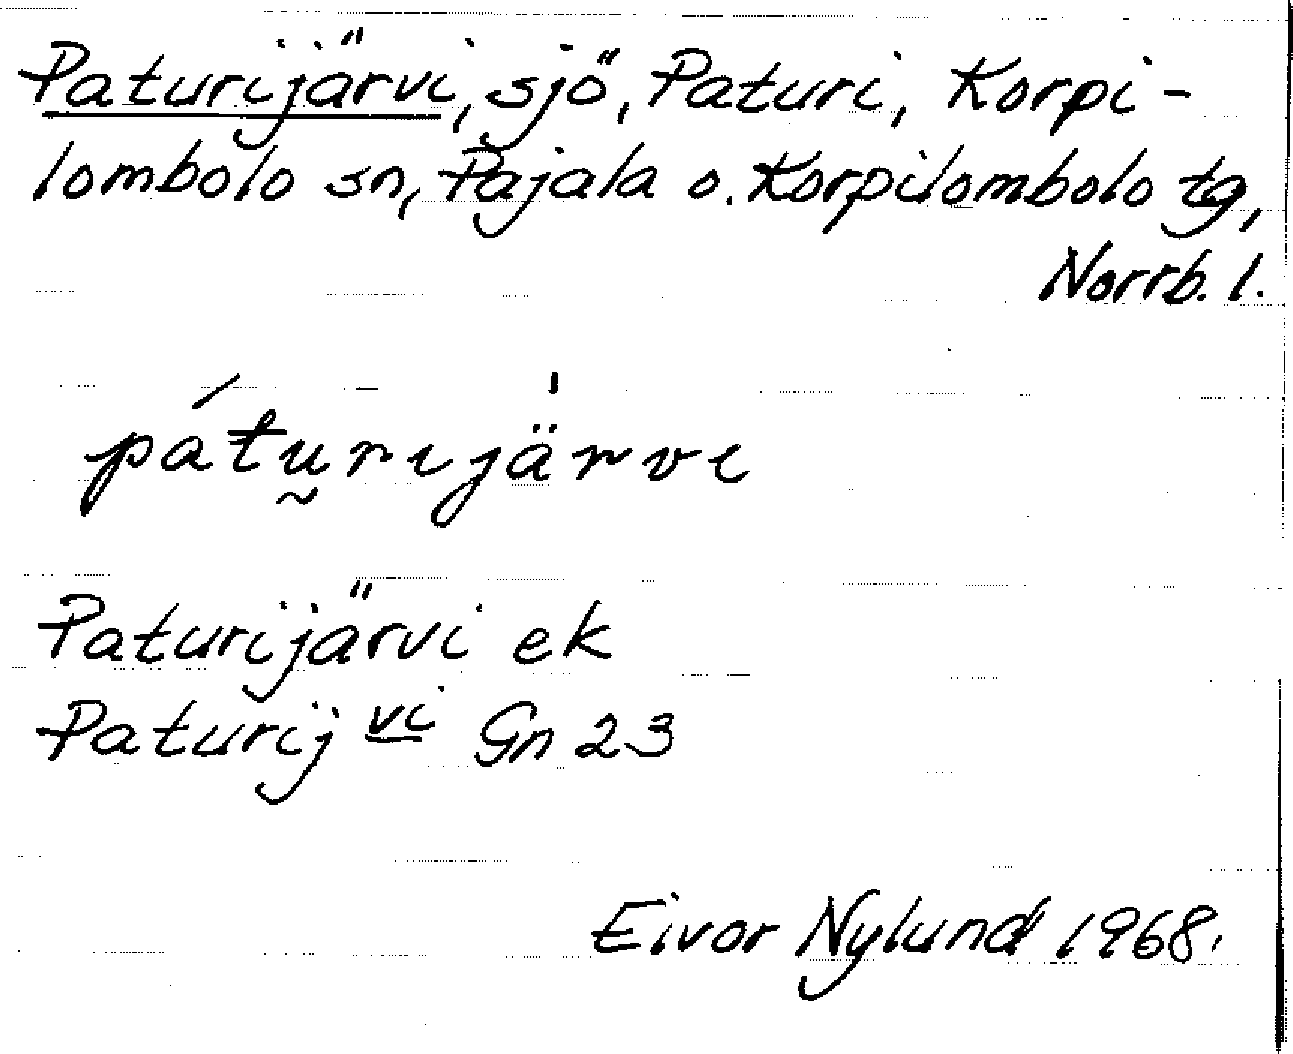 Paturijärvi, sjö, Paturi, Korpi-
lombolo sn, Pajala o. Korpilombolo tg,
Norrb. l.
páttu̮rijä̍rvi
Paturijärvi ek
Paturij vi Gn 23
Eivor Nylund 1968.